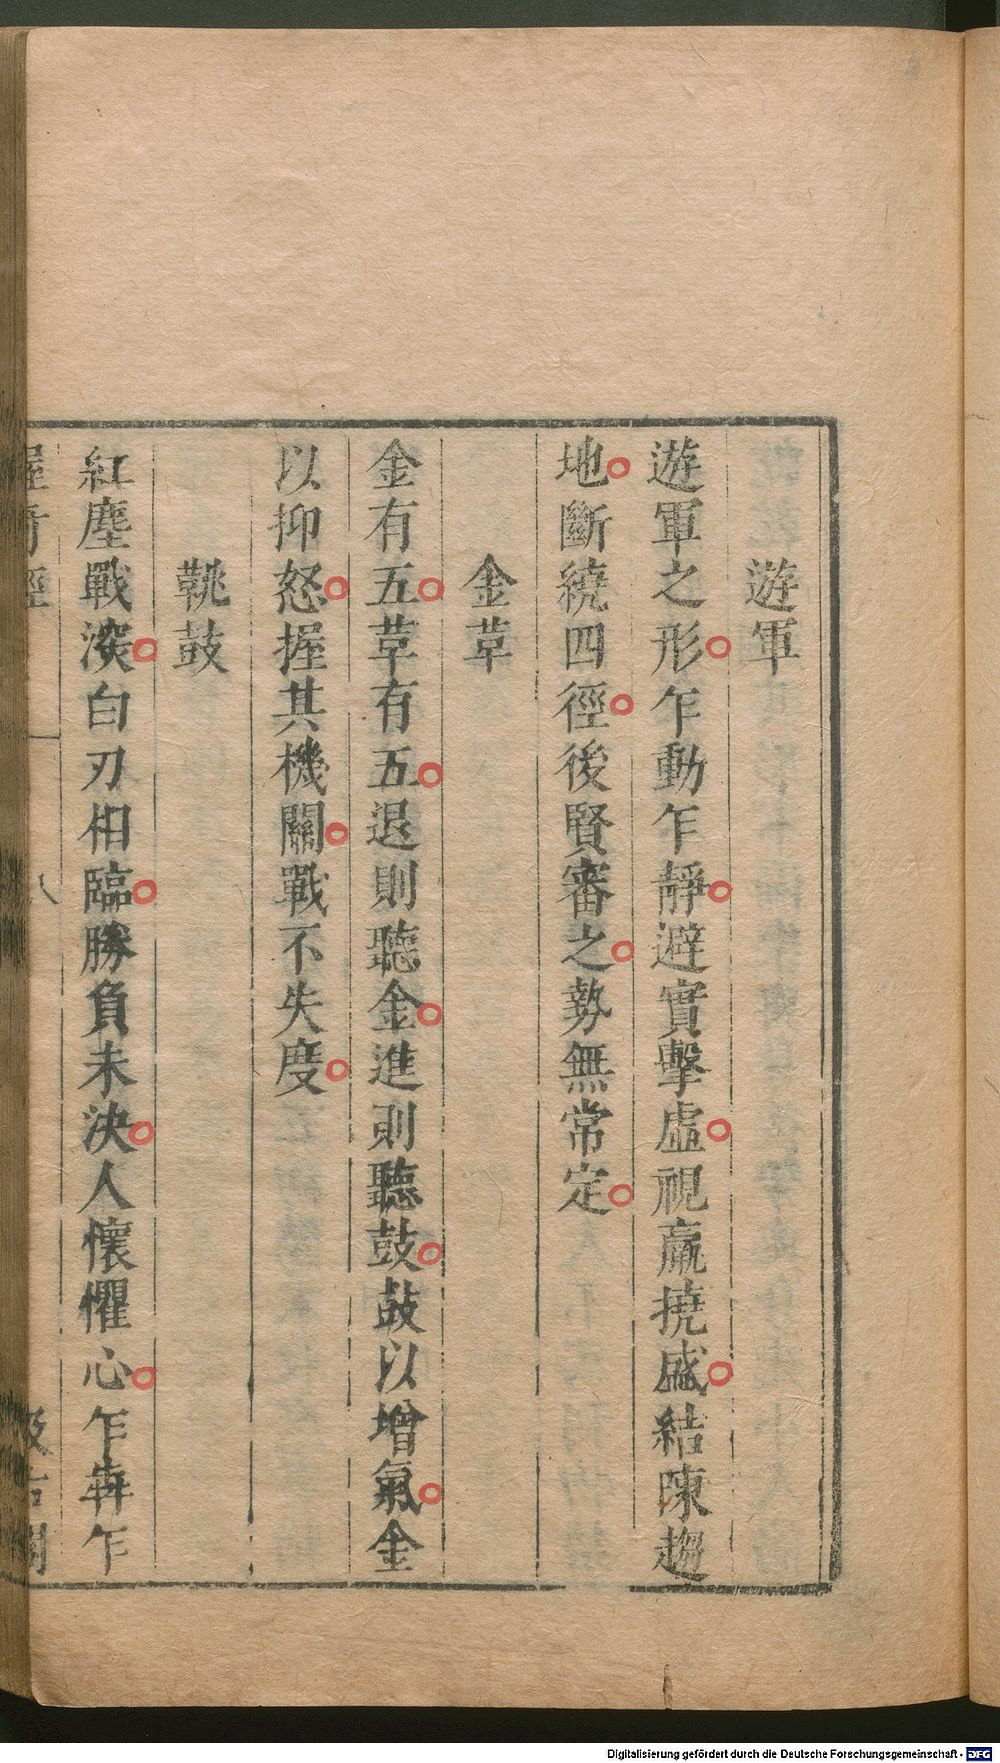 遊軍
遊軍之形乍動乍靜避實擊虛視羸撓盛結陳趨
地斷繞四徑後賢審之勢無常定
金革
金有五革有五退則聽金進則聽鼓鼓以增氣金
以抑怒握其機關戰不失度
鞉鼓
紅塵戰深白刃相臨勝負未決人懷懼心乍犇乍
握奇經 八 汲古閣
Digitalisierung gefördert durch die Deutsche Forschungsgemeinschaft - DFG